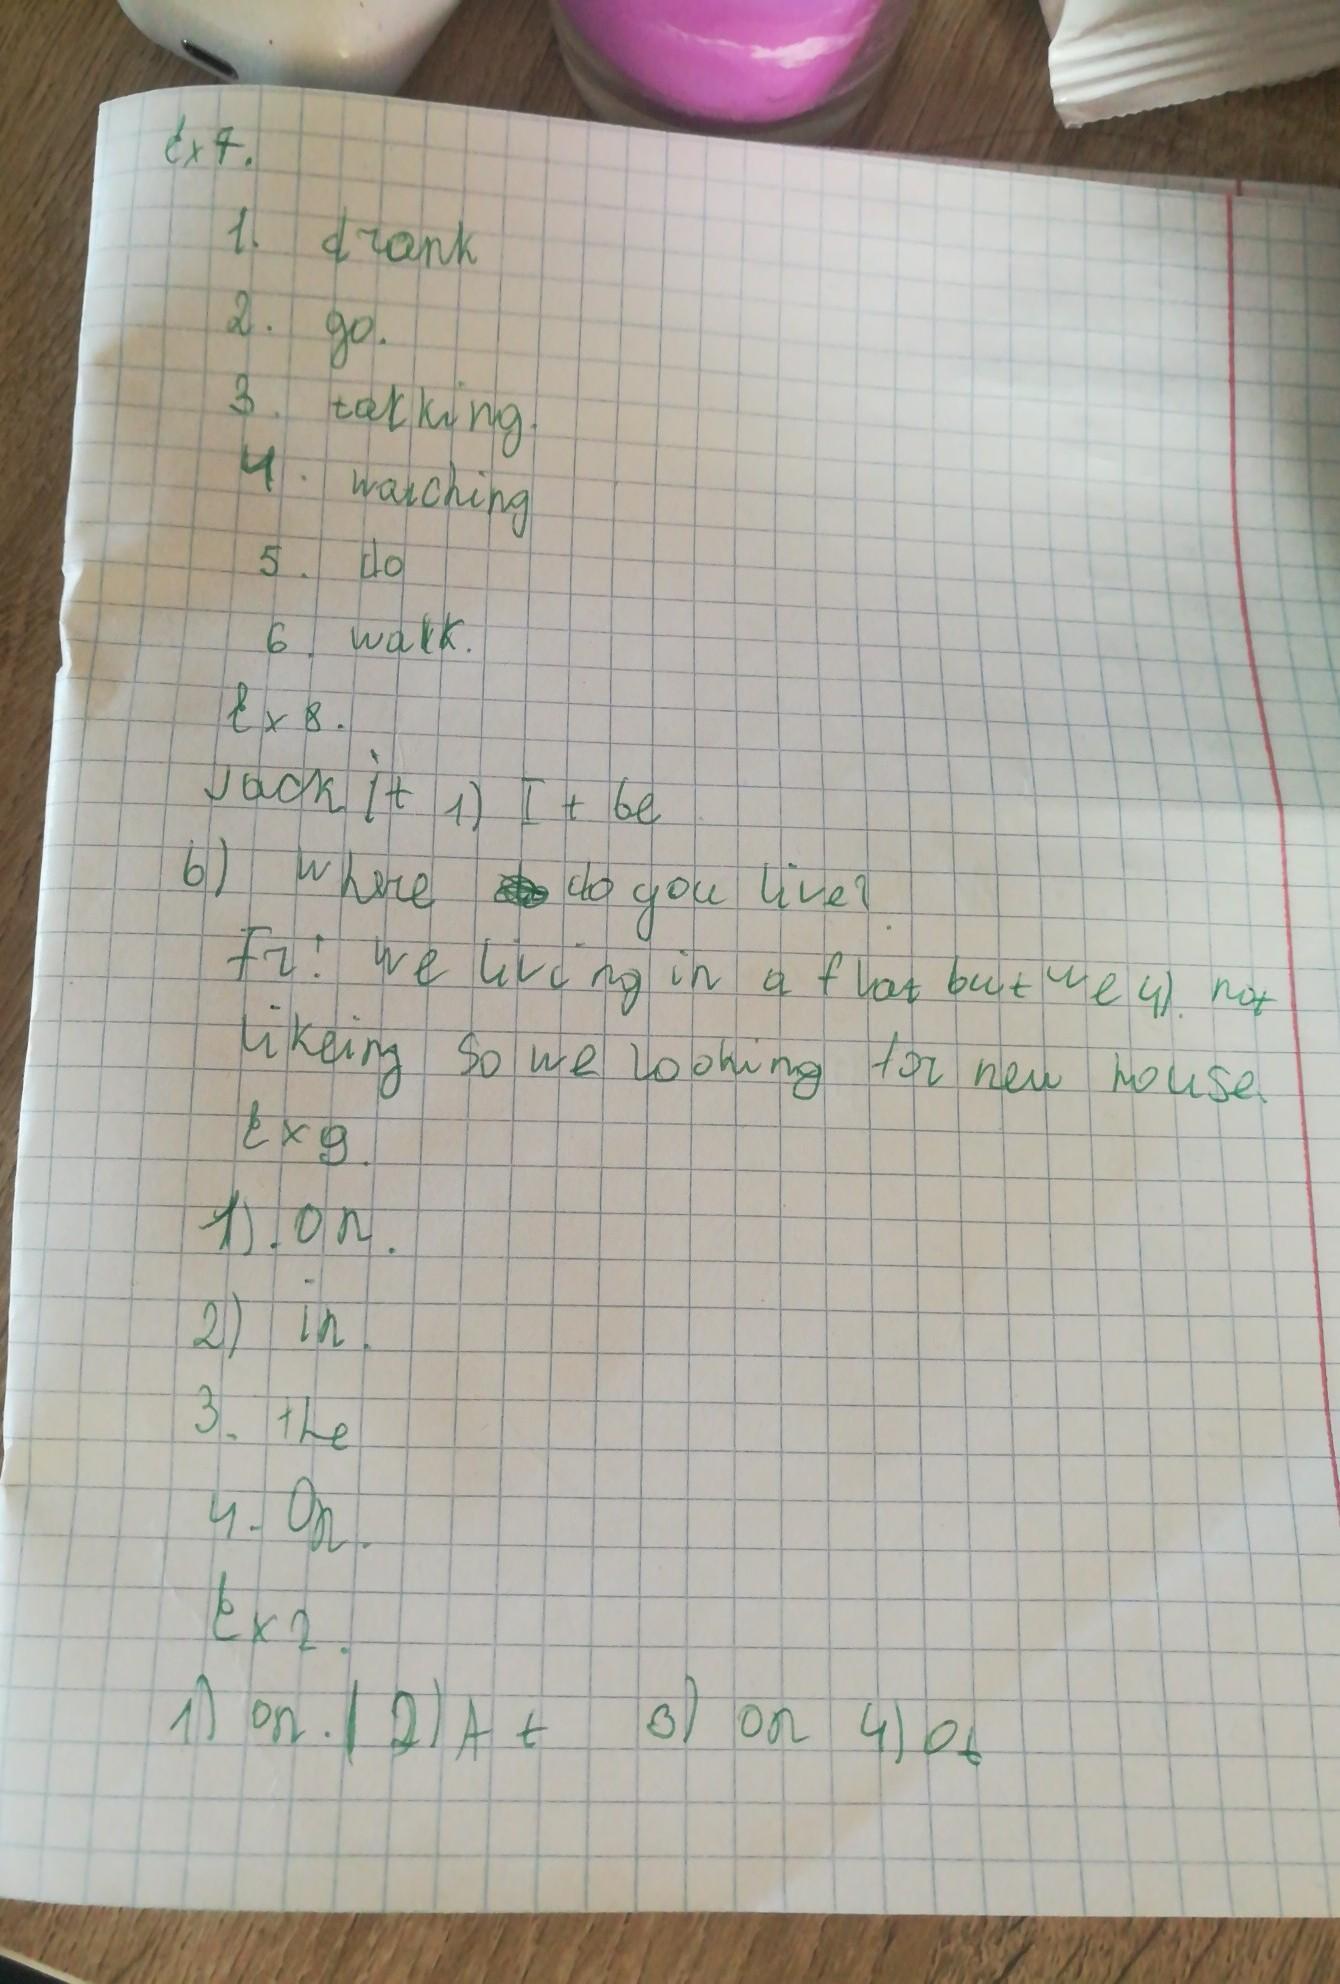 Ex 7.
1. drank
2. go.
3. talking.
4. watching
5. do
6. walk.
Ex 8.
Jack it 1) I + be
6) Where do you live?
Fr: we living in a flat but we 4). not
likeing so we looking for new house.
Ex 9.
1). on.
2) in.
3. the
4. On.
Ex 2.
1) on. 2) At 3) on 4) At